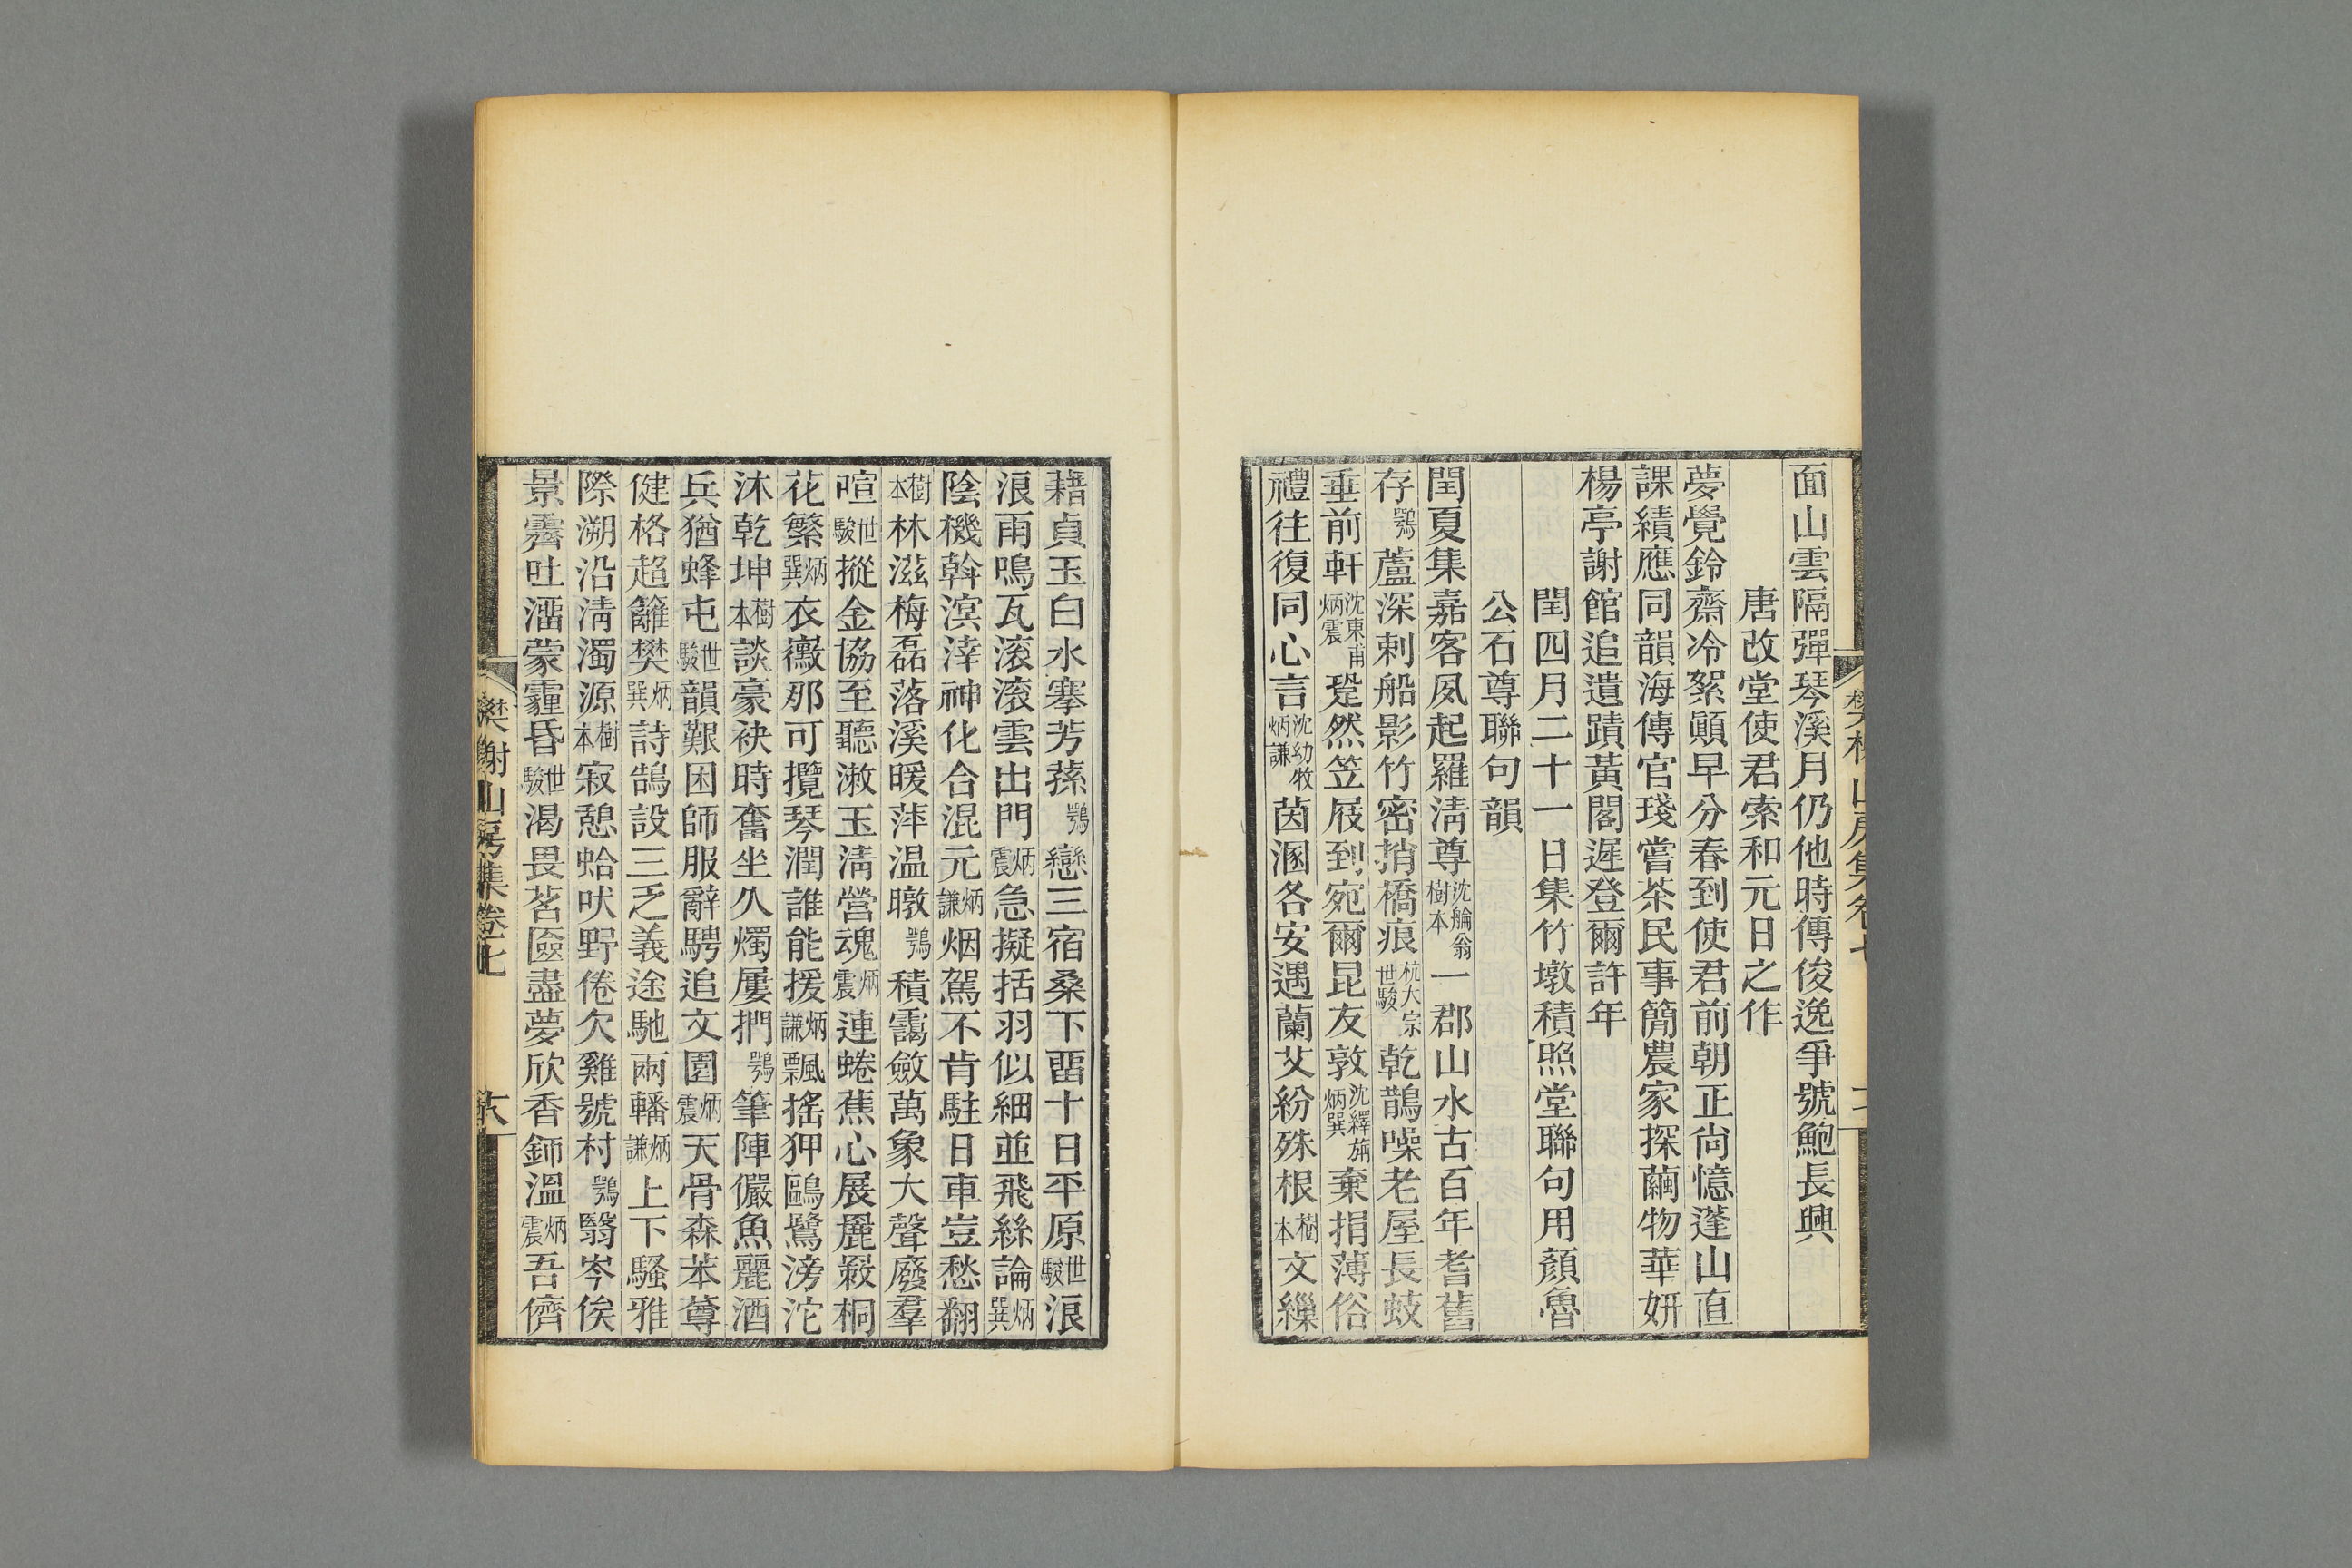 面山雲隔彈琴溪月仍他時傳俊逸爭號鮑長興
唐改堂使君索和元日之作
夢覺鈴齋冷絮顚早分春到使君前朝正尙憶蓬山直
課績應同韻海傳官琖嘗茶民事簡農家探繭物華妍
楊亭謝館追遺蹟黃閣遲登爾許年
閏四月二十一日集竹墩積照堂聯句用顏魯
公石尊聯句韻
閏夏集嘉客夙起羅淸尊沈艑翁樹本一郡山水古百年耆舊
存鶚蘆深刺船影竹密捎橋痕杭大宗世駿乾鵲噪老屋長蛟
垂前軒沈東甫炳震跫然笠屐到宛爾昆友敦沈繹旃炳巽棄捐薄俗
禮往復同心言沈幼牧炳謙茵溷各安遇蘭艾紛殊根樹本文繅
藉貞玉白水搴芳蓀鶚戀三宿桑下畱十日平原世駿浪
浪雨鳴瓦滚滚雲出門炳震急擬括羽似細並飛絲論炳巽
陰機斡溟涬神化合混元炳謙烟駕不肯駐日車豈愁翻
樹本林滋梅磊落溪暖萍温暾鶚積靄斂萬象大聲廢羣
喧世駿摐金協至聽漱玉淸營魂炳震連蜷蕉心展麗縠桐
花繁炳巽衣黴那可攬琴潤誰能援炳謙飄搖狎鷗鷺滂沱
沐乾坤樹本談豪袂時奮坐久燭屢捫鶚筆陣儼魚麗酒
兵猶蜂屯世駿韻艱困師服辭騁追文園炳震天骨森苯䔿
健格超籬樊炳巽詩鵠設三乏義途馳兩轓炳謙上下騷雅
際溯沿淸濁源樹本寂憩蛤吠野倦欠雞號村鶚翳岑俟
景霽吐溜蒙霾昏世駿渴畏茗匳盡夢欣香鉓溫炳震吾儕
樊榭山房集卷七